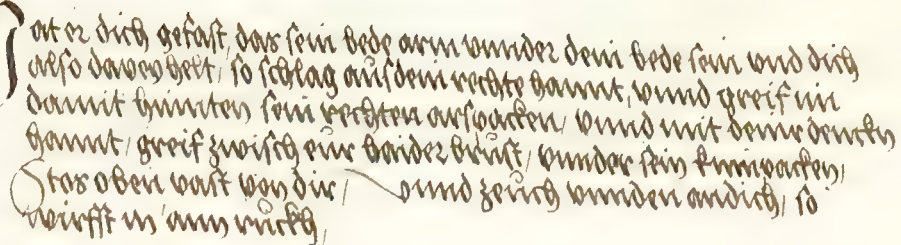 Hat er dich gefast, das sein bede arm vnnder dein bede sein vnd dich
also davey helt, so schlag aus dein rechte hannt, vnnd greif im
damit hinnten sein rechten arspacken, vnnd mit deinr dencken
hannt, greif zwisch eur baider brust, vnnder sein kinnpacken,
Stos oben vast von dir, vnnd zeuch vnnden an dich, so
wirfst in ann ruckh,